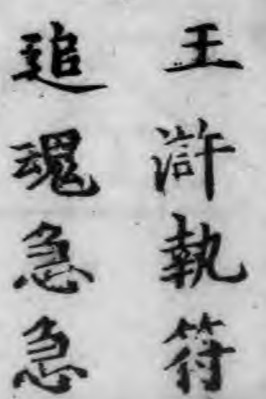 王滸執符
追魂急急